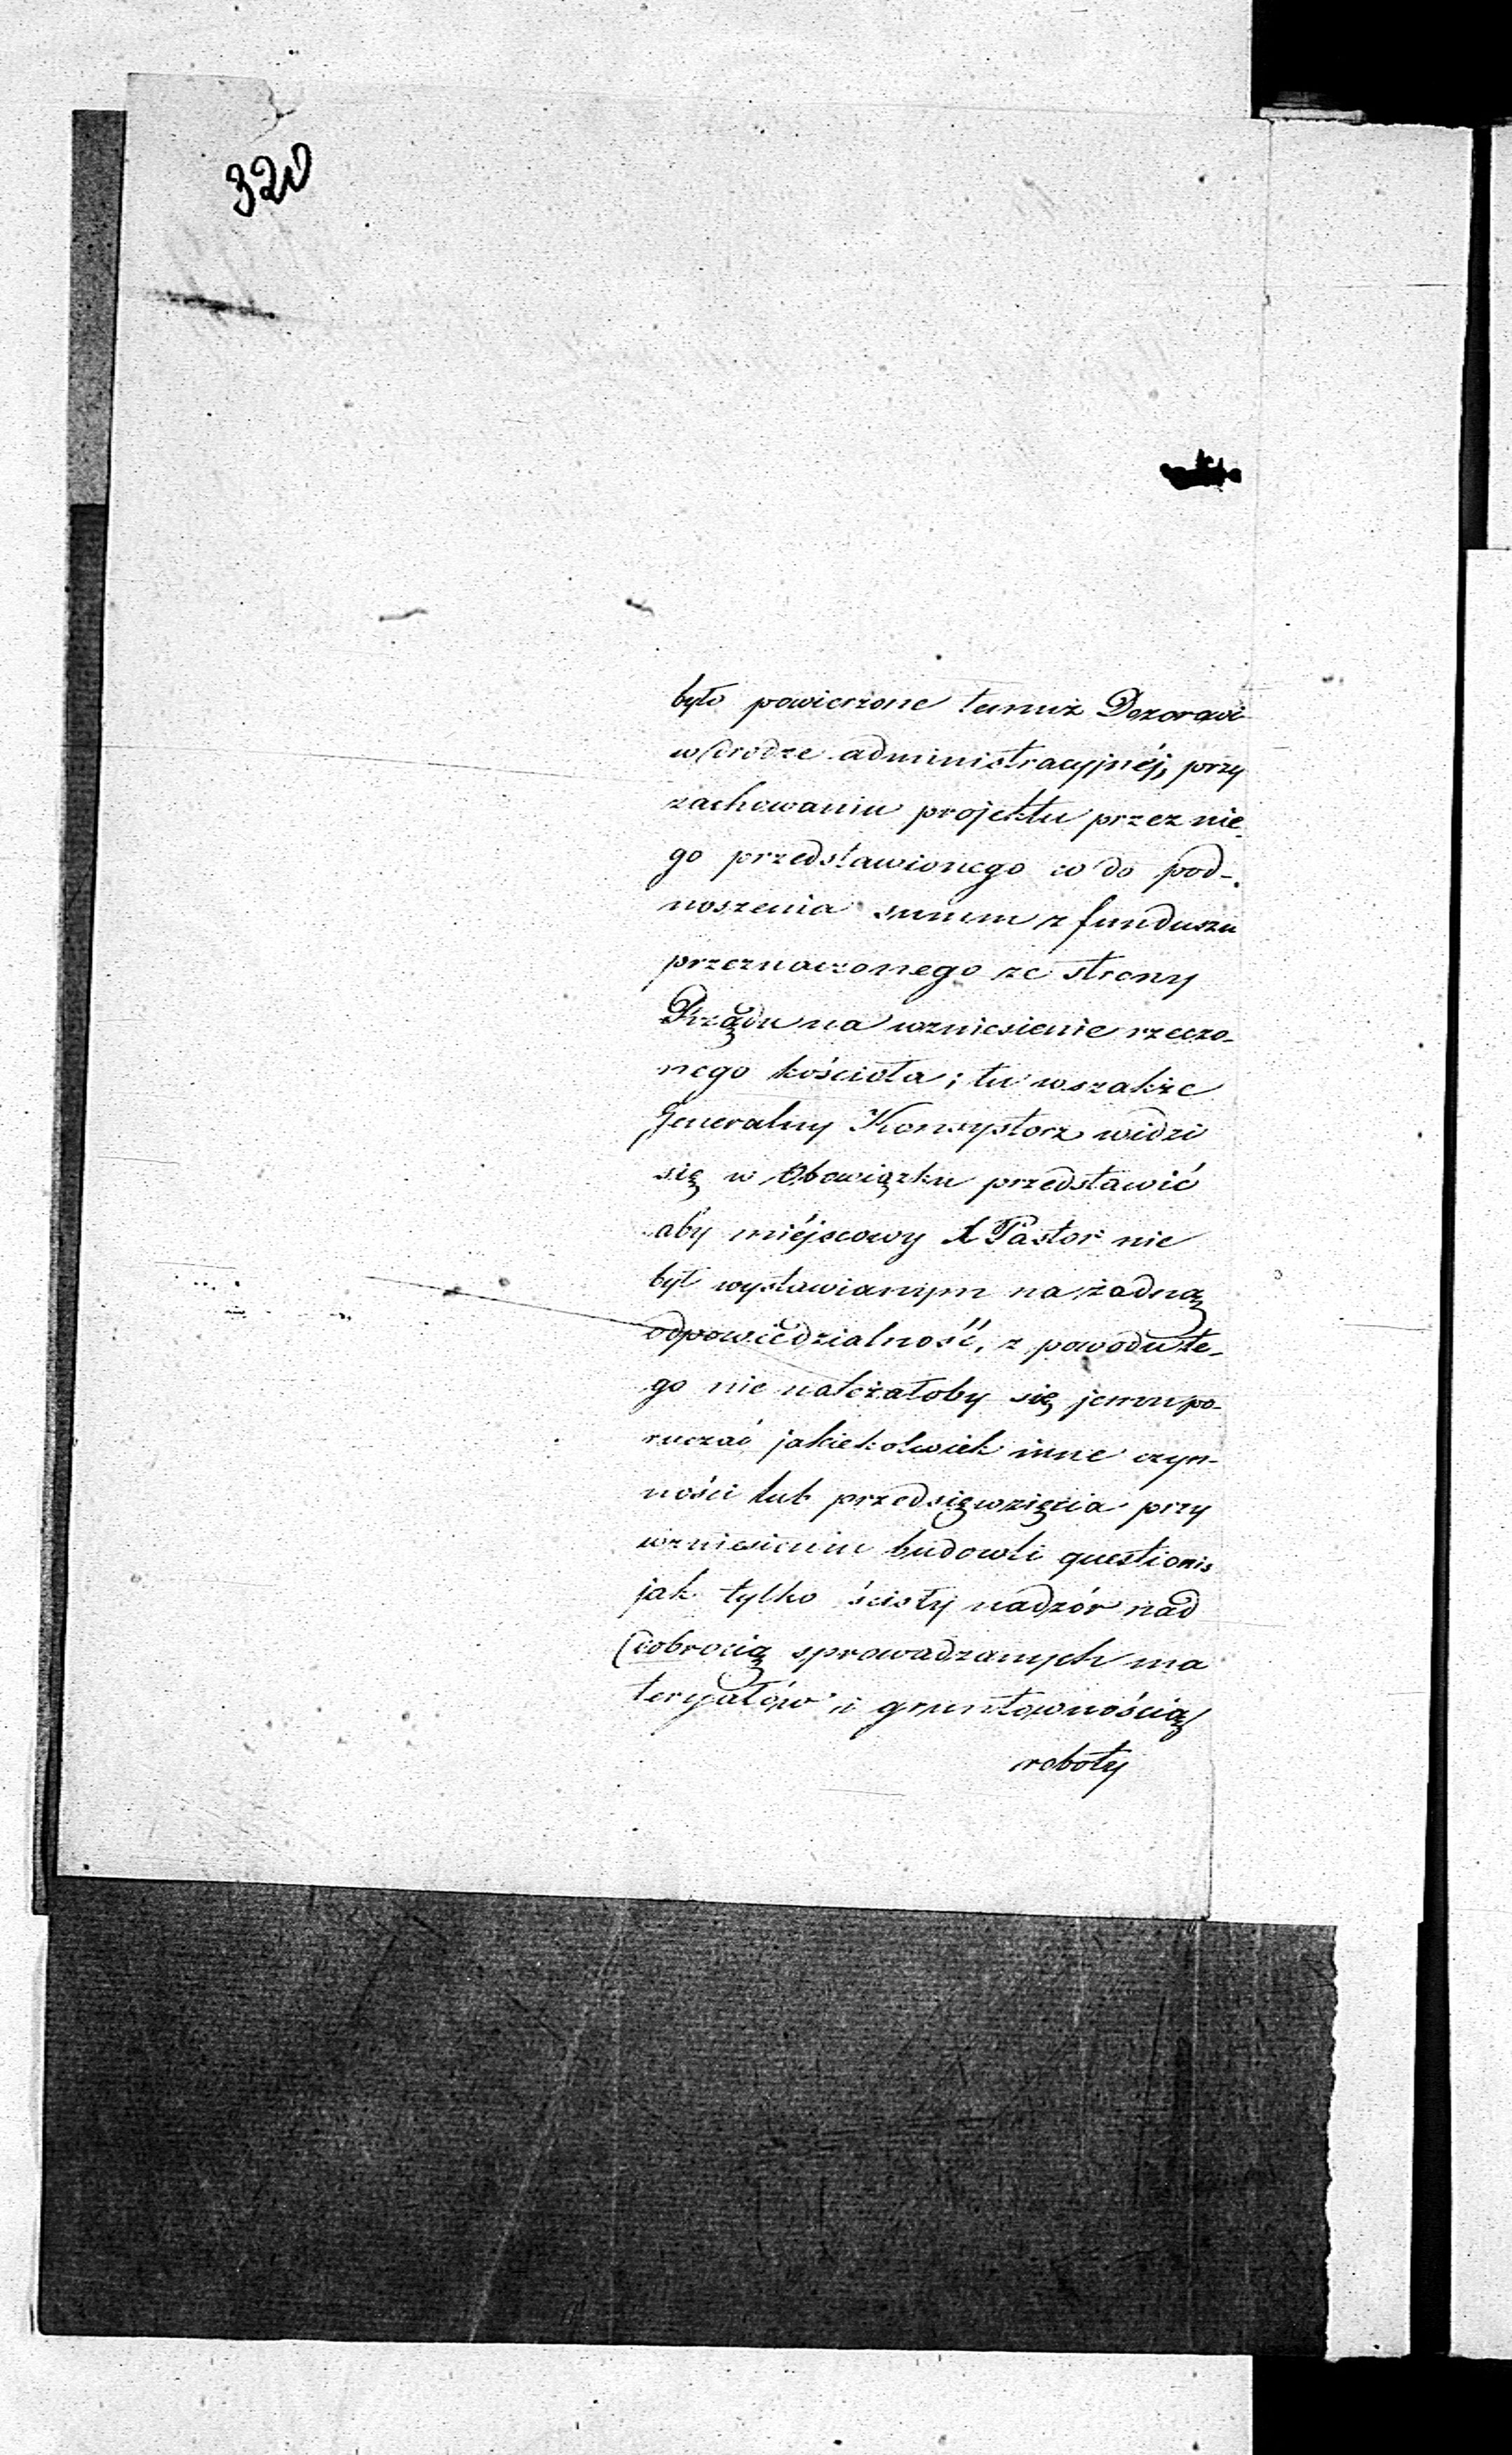 320
było powierzone temuż Dozorowi
w drodze administracyjnéj, przy
zachowaniu projektu przez nie-
go przedstawionego co do pod-
noszenia summ z funduszu
przeznaczonego ze strony
Rządu na wzniesienie rzeczo-
nego kościoła; tu wszakże
Generalny Konsystorz widzi
się w Obowiązku przedstawić
aby miéjscowy X Pastor nie
był wystawianym na żadną
odpowiedzialność, z powodu te-
go nie należałoby się jemu po-
ruczać jakiekolwiek inne czyn-
ności lub przedsięwzięcia przy
wzniesieniu budowli questionis
jak tylko ścisły nadzór nad
dobrocią sprowadzanych ma
teryałów i gruntownością
roboty